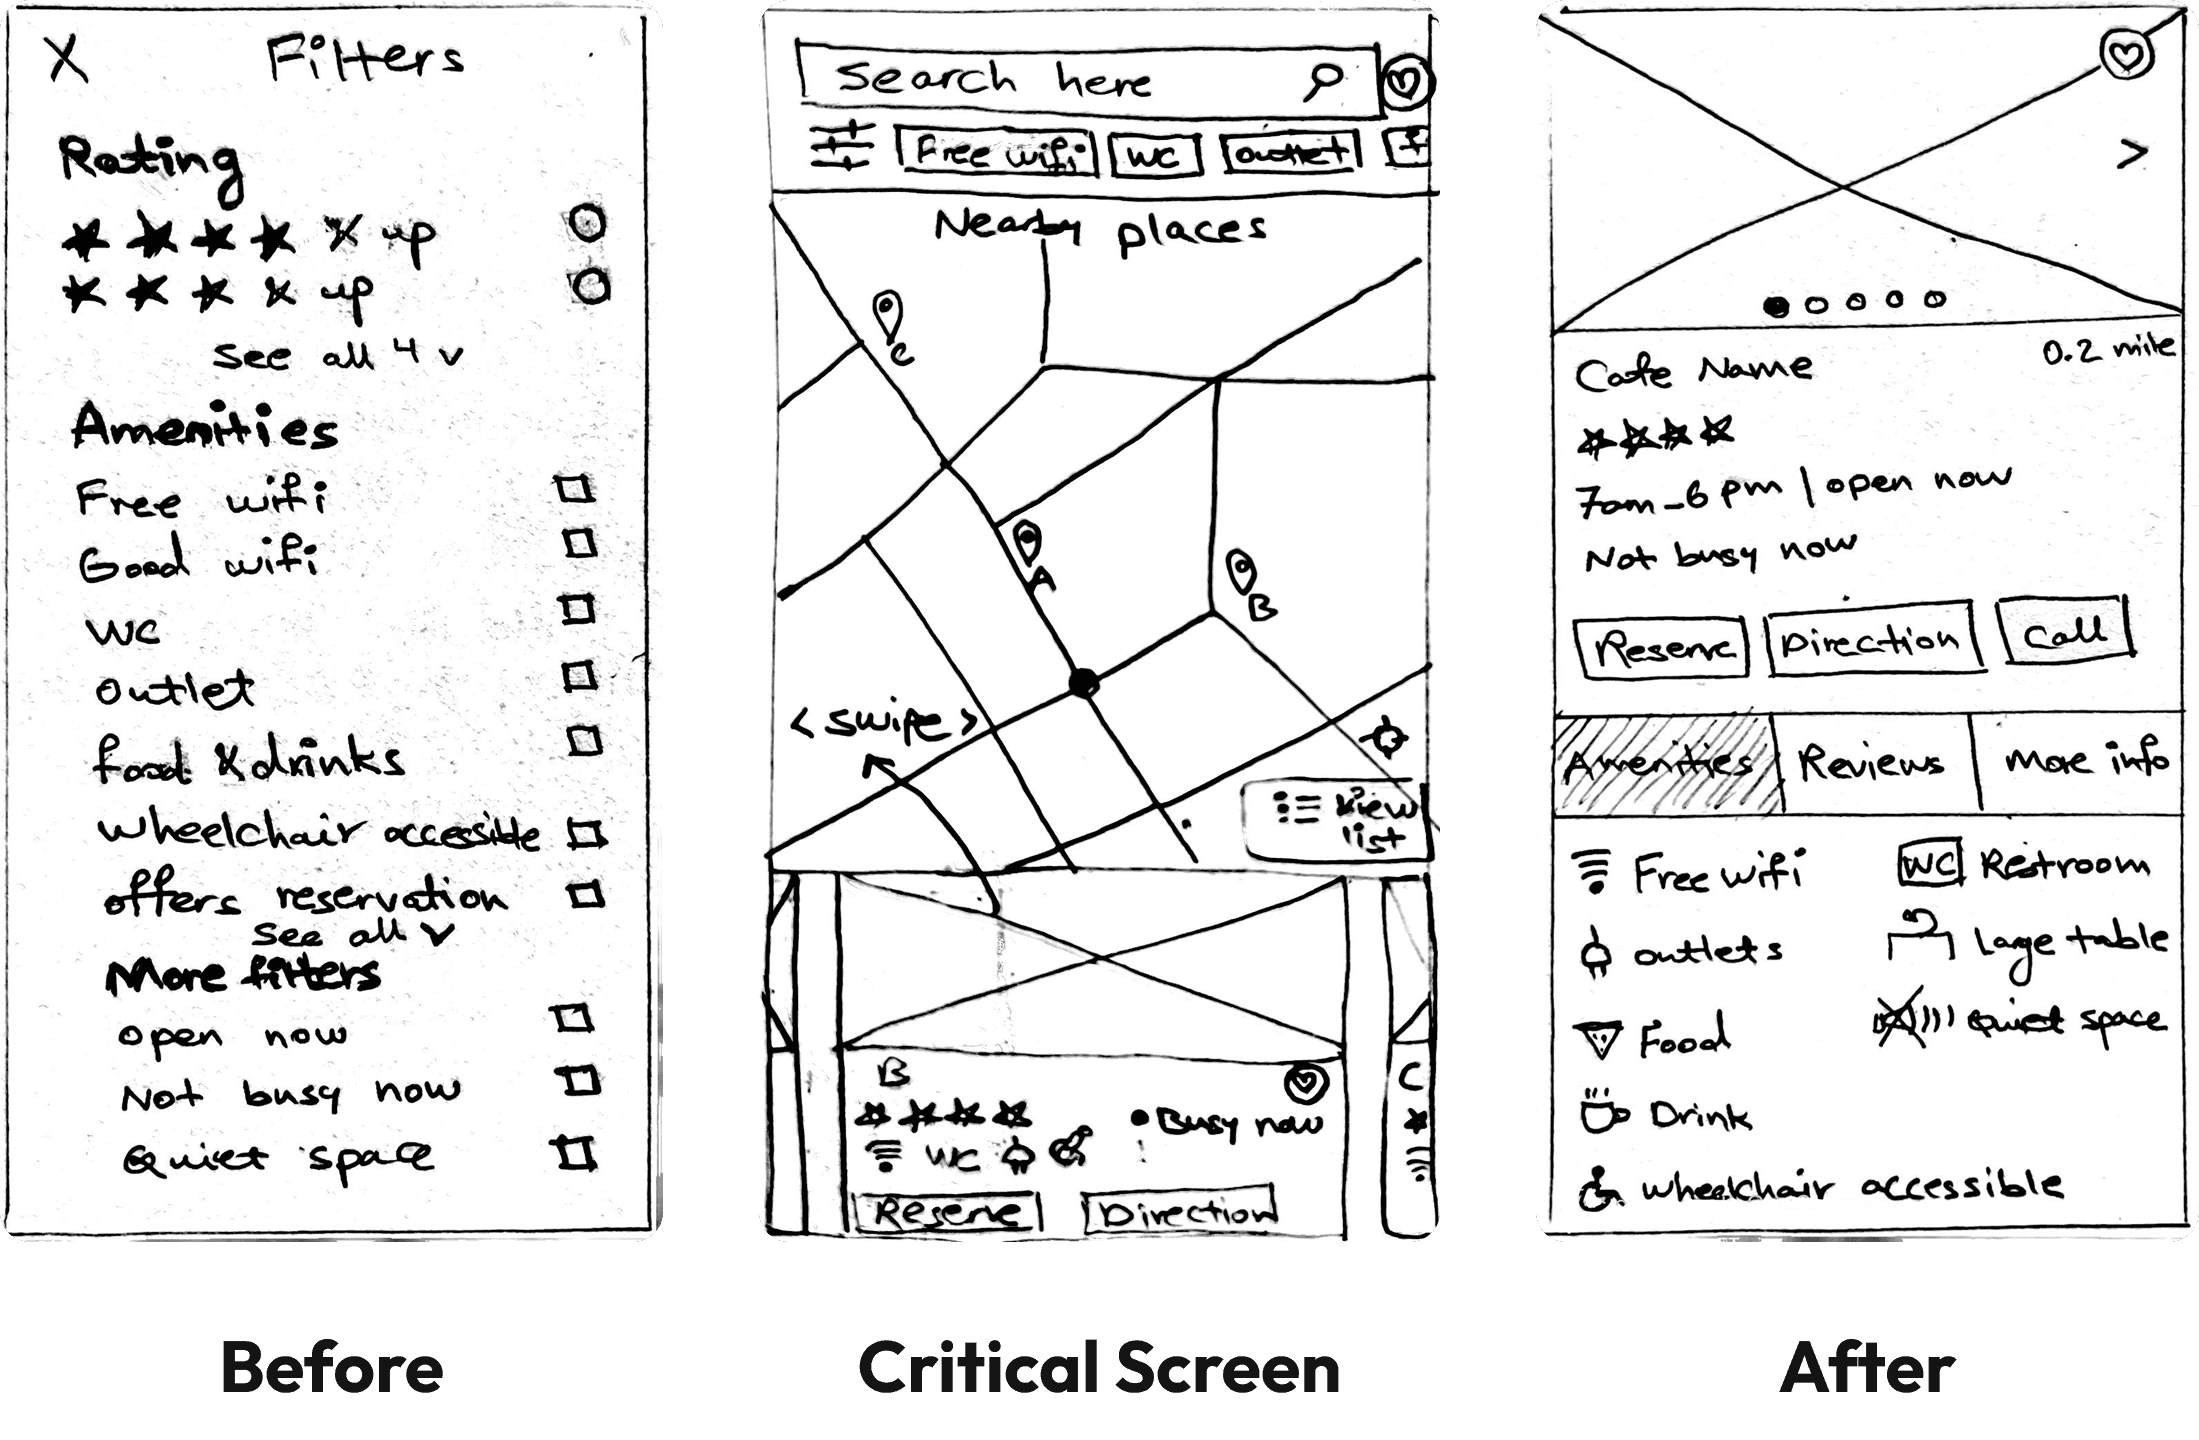 X Filters
Rating
up
up
See all 4 v
Amenities
Free wifi
Good wifi
WC
outlet
food & drinks
wheelchair accessible
offers reservation
See all v
More filters
open now
Not busy now
Quiet space
Before
Search here
Free wifi WC outlet
Nearby places
C
A
B
< swipe >
View
list
B
Busy now
WC
Reserve Direction
C
Critical Screen
>
0.2 mile
Cafe Name
7am-6pm | open now
Not busy now
Reserve Direction Call
Amenities Reviews More info
Free wifi WC Restroom
outlets Large table
Food Quiet space
Drink
wheelchair accessible
After